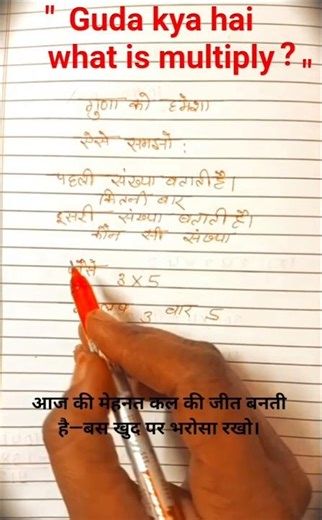 " Guda kya hai
what is multiply ? "
गुणा को हमेशा
ऐसे समझो :
पहली संख्या बताती है।
कितनी बार
दूसरी संख्या बताती है।
कौन सी संख्या
जैसे 3 × 5
3 बार 5
आज की मेहनत कल की जीत बनती
है—बस खुद पर भरोसा रखो।